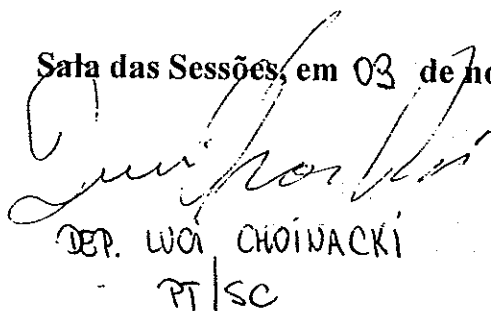 Sala das Sessões, em 03 de no
DEP. LUCI CHOINACKI
PT/SC